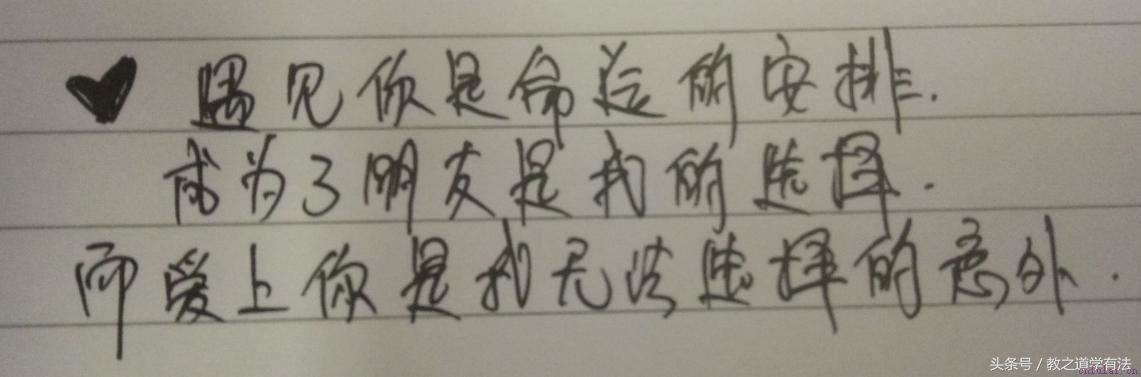 ♥ 遇见你是命运的安排.
成为了朋友是我的选择.
而爱上你是我无法选择的意外.
头条号 / 教之道学有法